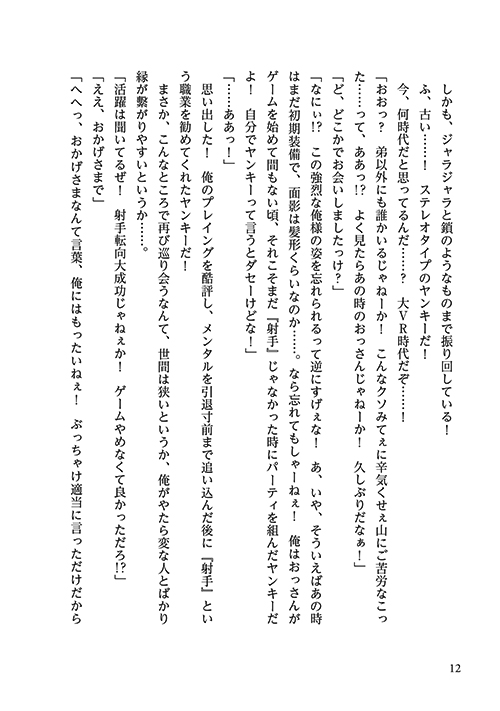 しかも、ジャラジャラと鎖のようなものまで振り回している！
　ふ、古い……！　ステレオタイプのヤンキーだ！
　今、何時代だと思ってるんだ……？　大ＶＲ時代だぞ……！
「おおっ？　弟以外にも誰かいるじゃねーか！　こんなクソみてぇに辛気くせぇ山にご苦労なこっ
た……って、ああっ!?　よく見たらあの時のおっさんじゃねーか！　久しぶりだなぁ！」
「ど、どこかでお会いしましたっけ？」
「なにぃ!?　この強烈な俺様の姿を忘れられるって逆にすげぇな！　あ、いや、そういえばあの時
はまだ初期装備で、面影は髪形くらいなのか……。なら忘れてもしゃーねぇ！　俺はおっさんが
ゲームを始めて間もない頃、それこそまだ『射手』じゃなかった時にパーティを組んだヤンキーだ
よ！　自分でヤンキーって言うとダセーけどな！」
「……ああっ！」
　思い出した！　俺のプレイングを酷評し、メンタルを引退寸前まで追い込んだ後に『射手』とい
う職業を勧めてくれたヤンキーだ！
　まさか、こんなところで再び巡り会うなんて、世間は狭いというか、俺がやたら変な人とばかり
縁が繋がりやすいというか……。
「活躍は聞いてるぜ！　射手転向大成功じゃねぇか！　ゲームやめなくて良かっただろ!?」
「ええ、おかげさまで」
「へへっ、おかげさまなんて言葉、俺にはもったいねぇ！　ぶっちゃけ適当に言っただけだから
12